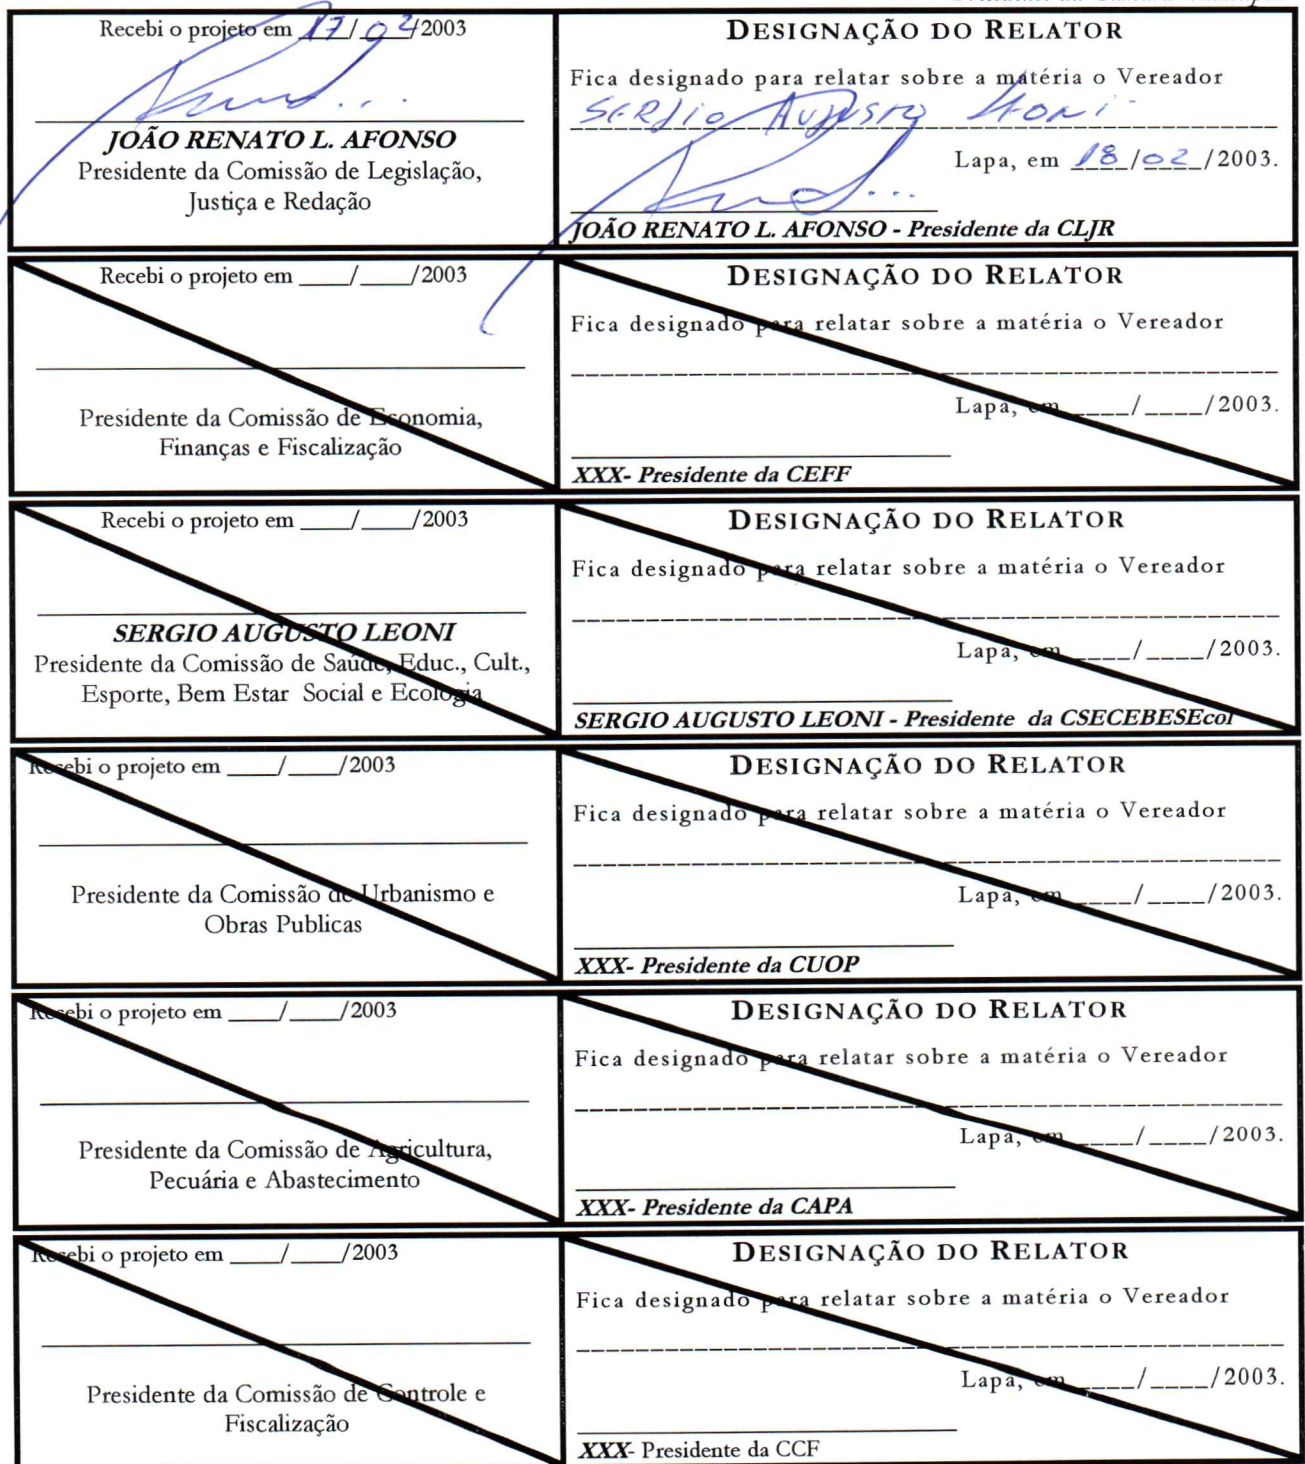 Recebi o projeto em 17/02/2003
JOÃO RENATO L. AFONSO
Presidente da Comissão de Legislação,
Justiça e Redação
DESIGNAÇÃO DO RELATOR
Fica designado para relatar sobre a matéria o Vereador
SERGIO AUGUSTO LEONI
Lapa, em 18/02/2003.
JOÃO RENATO L. AFONSO - Presidente da CLJR
Recebi o projeto em ____/____/2003
Presidente da Comissão de Economia,
Finanças e Fiscalização
DESIGNAÇÃO DO RELATOR
Fica designado para relatar sobre a matéria o Vereador
Lapa, em ____/____/2003.
XXX- Presidente da CEFF
Recebi o projeto em ____/____/2003
SERGIO AUGUSTO LEONI
Presidente da Comissão de Saúde, Educ., Cult.,
Esporte, Bem Estar Social e Ecologia
DESIGNAÇÃO DO RELATOR
Fica designado para relatar sobre a matéria o Vereador
Lapa, em ____/____/2003.
SERGIO AUGUSTO LEONI - Presidente da CSECEBESEcol
Recebi o projeto em ____/____/2003
Presidente da Comissão de Urbanismo e
Obras Publicas
DESIGNAÇÃO DO RELATOR
Fica designado para relatar sobre a matéria o Vereador
Lapa, em ____/____/2003.
XXX- Presidente da CUOP
Recebi o projeto em ____/____/2003
Presidente da Comissão de Agricultura,
Pecuária e Abastecimento
DESIGNAÇÃO DO RELATOR
Fica designado para relatar sobre a matéria o Vereador
Lapa, em ____/____/2003.
XXX- Presidente da CAPA
Recebi o projeto em ____/____/2003
Presidente da Comissão de Controle e
Fiscalização
DESIGNAÇÃO DO RELATOR
Fica designado para relatar sobre a matéria o Vereador
Lapa, em ____/____/2003.
XXX- Presidente da CCF